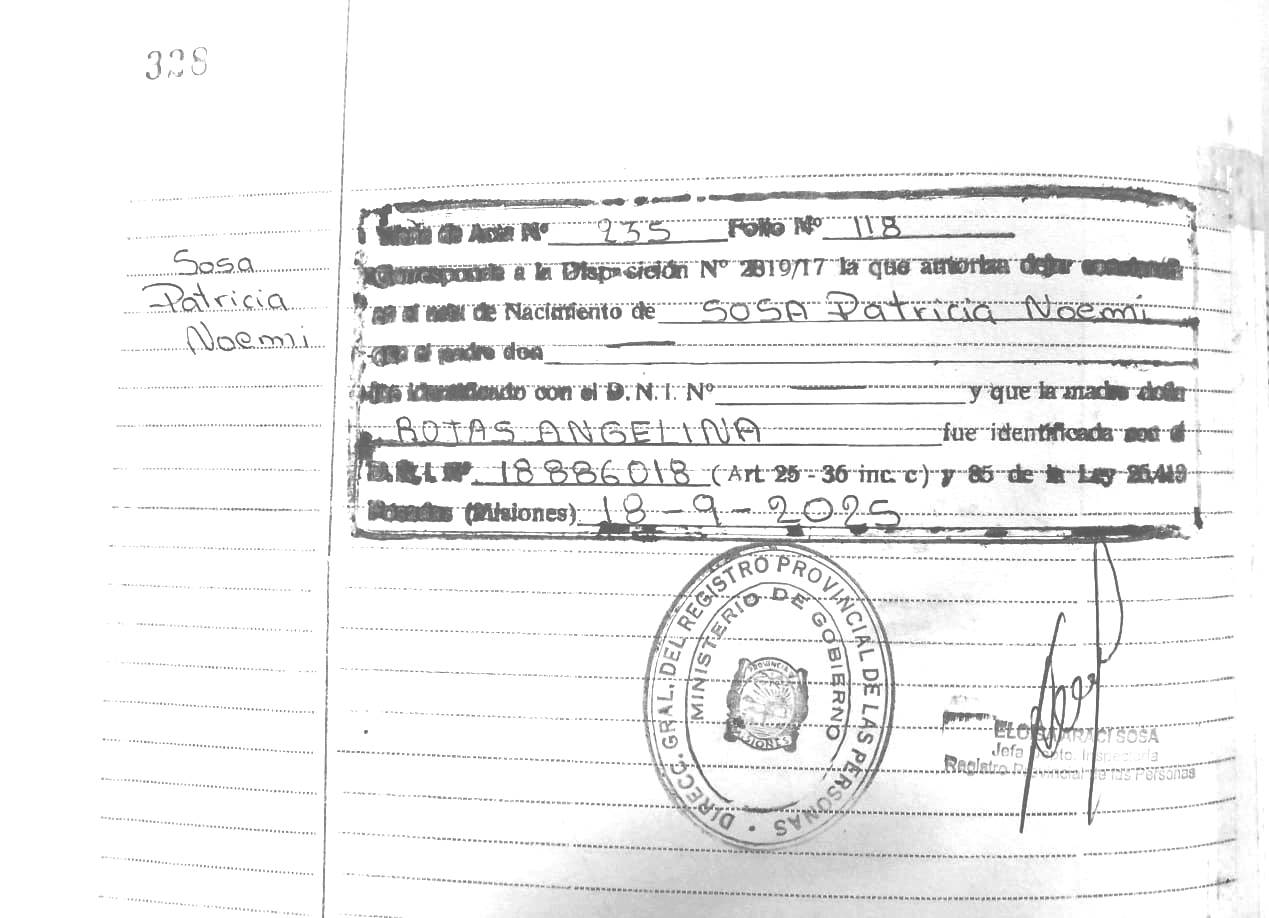 328
Sosa
Patricia
Noemi
de Acta Nº 235 Folio Nº 118
Corresponde a la Disposición Nº 2819/17 la que autoriza dejar
de Nacimiento de SOSA Patricia Noemi
padre don
identificado con el D. N. I. Nº y que la madre doña
ROJAS ANGELINA fue identificada con el
D. N. I. Nº 18886018 (Art. 25 - 36 inc. c) y 85 de la Ley 26.413
Posadas (Misiones) 18-9-2025
DIRECC. GRAL. DEL REGISTRO PROVINCIAL DE LAS PERSONAS
MINISTERIO DE GOBIERNO
PROVINCIA
MISIONES
SOSA
Jefa Dpto. Inspectoría
Registro Provincial de las Personas